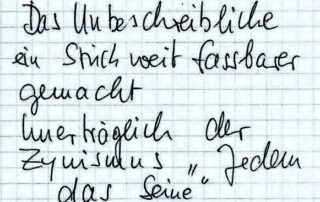 Das Unbeschreibliche
ein Strich weit fassbarer
gemacht
Unerträglich der
Zynismus „Jedem
das Seine“